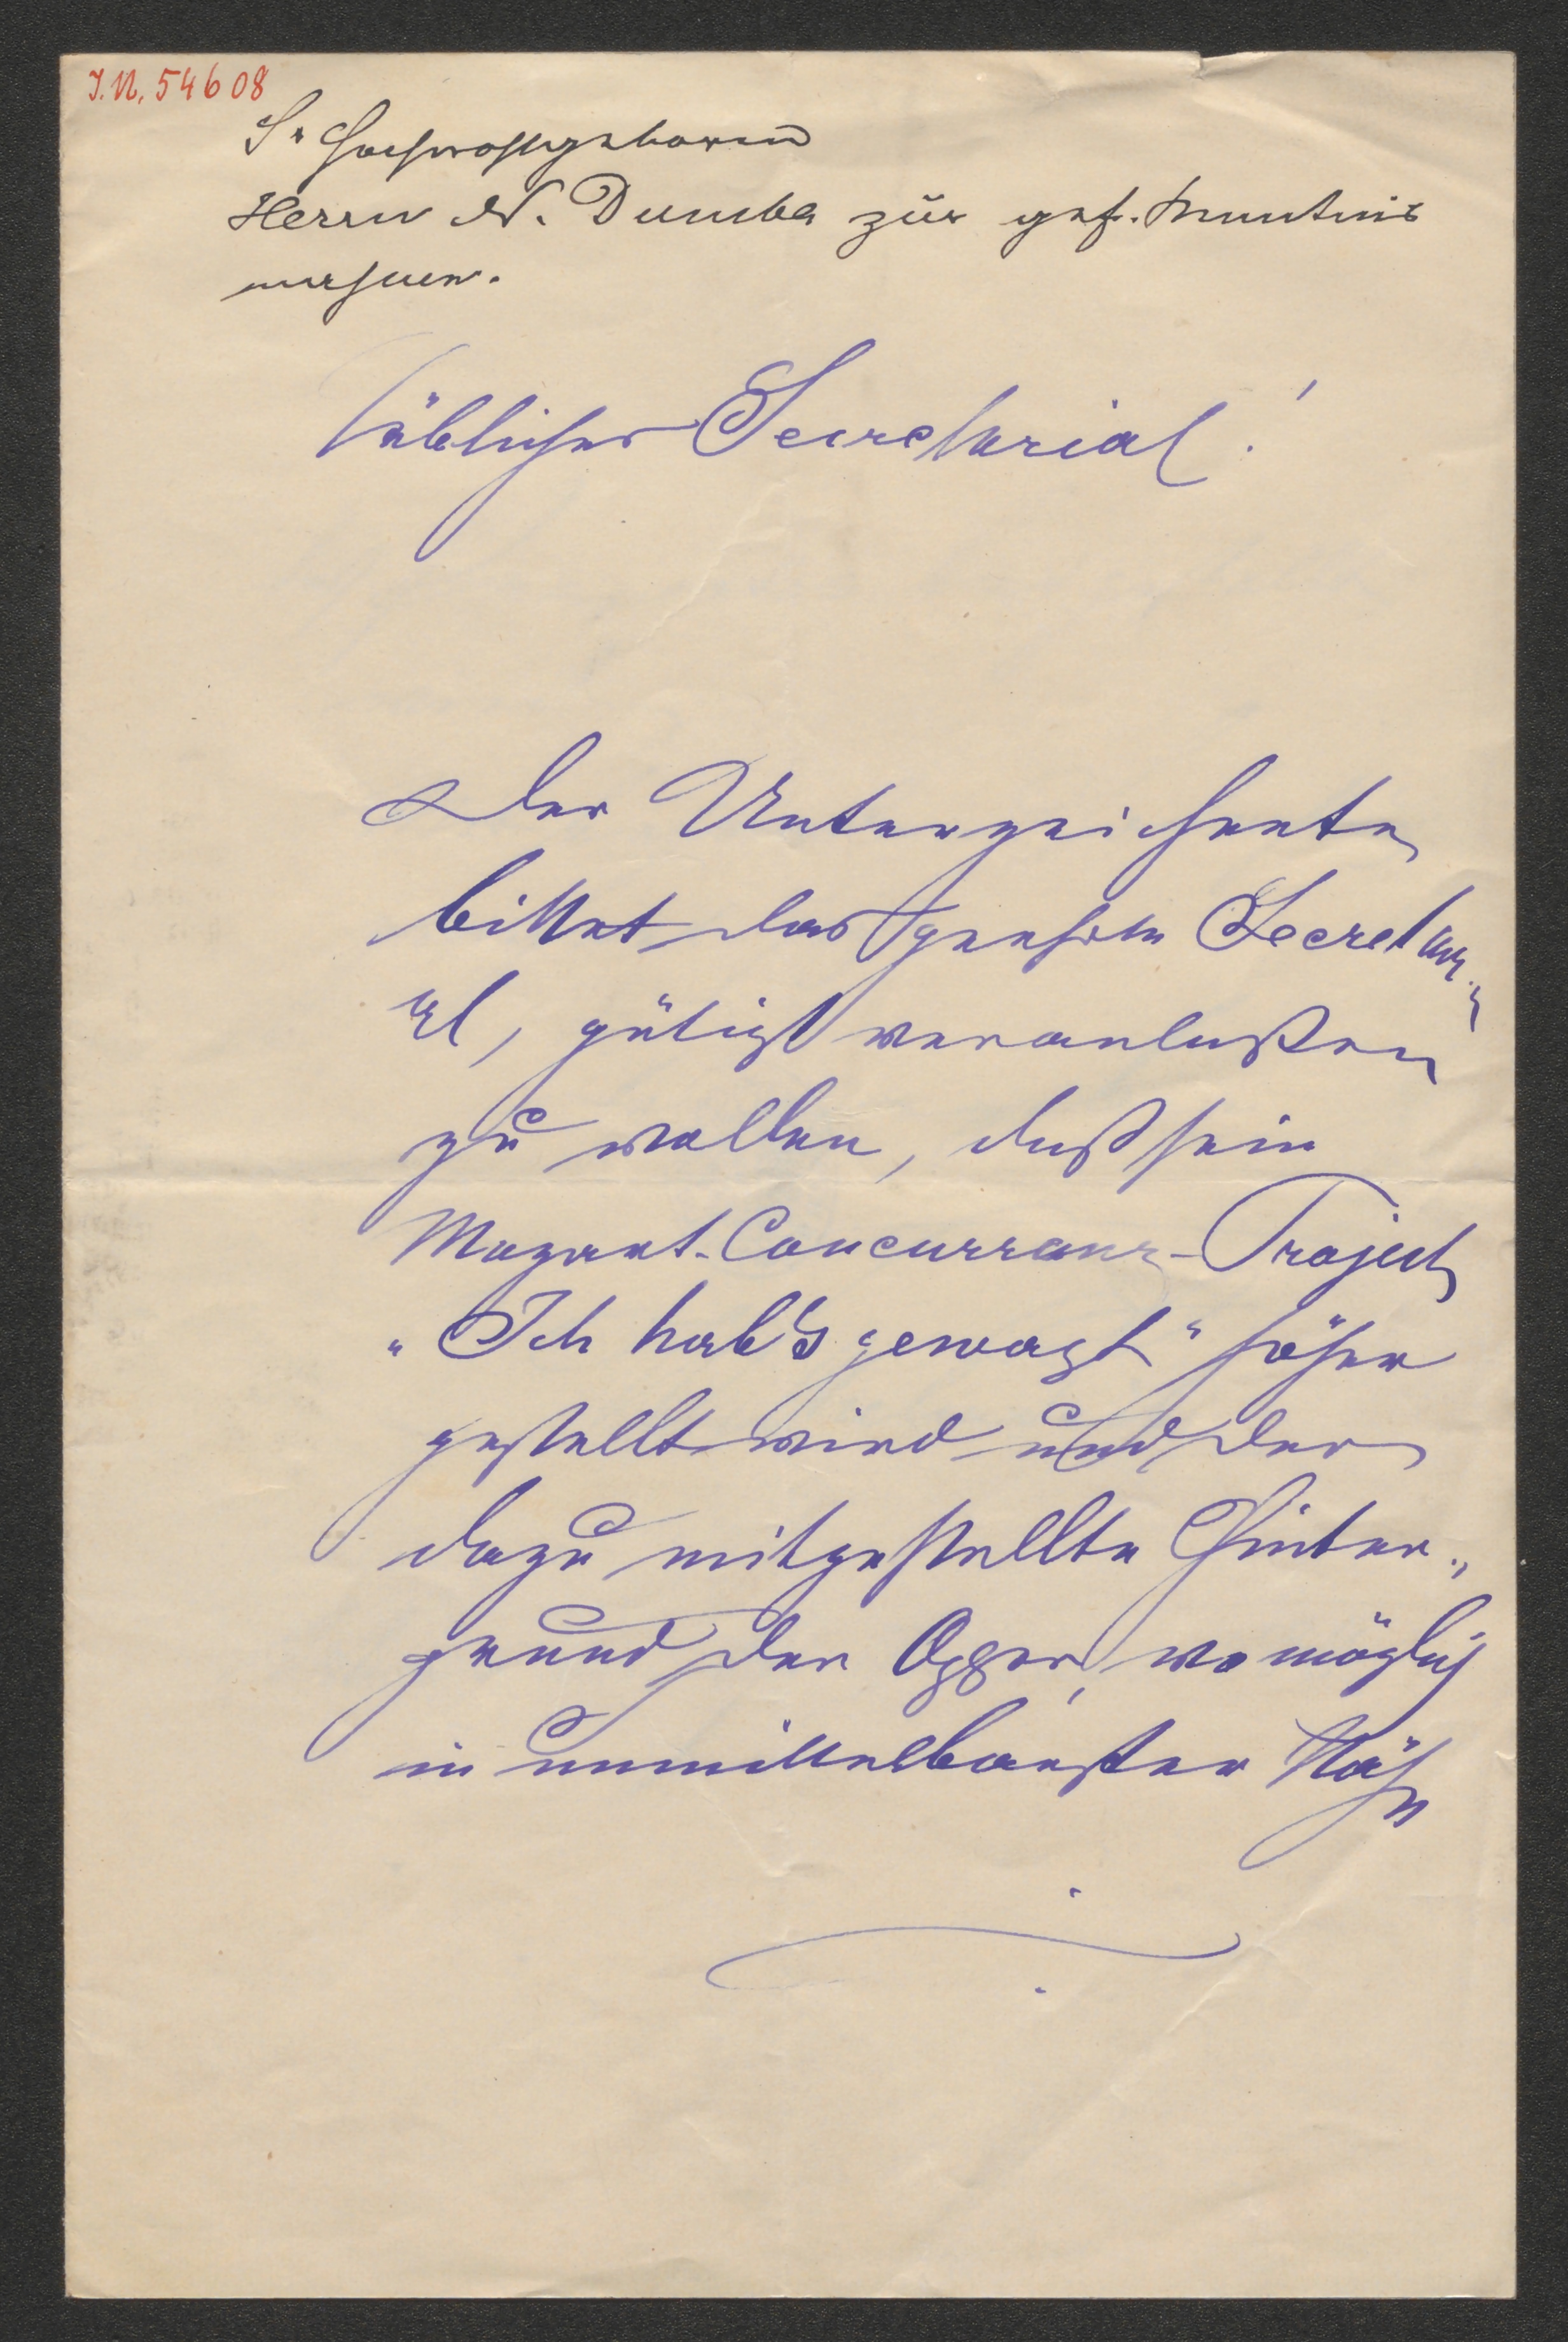 I.N. 54608
Sr Hochwohlgeboren
Herrn N. Dumba zur gef. Kenntnis
nahme.
Löbliches Secretariat!
Der Unterzeichnete
bittet das geehrte Secretar„
iat, gütigst veranlaßen
zu wollen, daß sein
Mozart-Concurrenz-Project
„Ich hab's gewagt" höher
gestellt wird und der
dazu mitgestellte Hinter„
grund der Oper, womöglich
in unmittelbarster Nähe